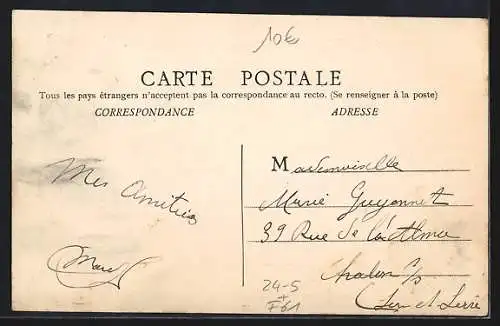 10€
CARTE POSTALE
Tous les pays étrangers n'acceptent pas la correspondance au recto. (Se renseigner à la poste)
CORRESPONDANCE
ADRESSE
Mes Amitiés
Mademoiselle
Marie Guyonnet
39 Rue de l'Alma
Chalon s/s
24-5
+